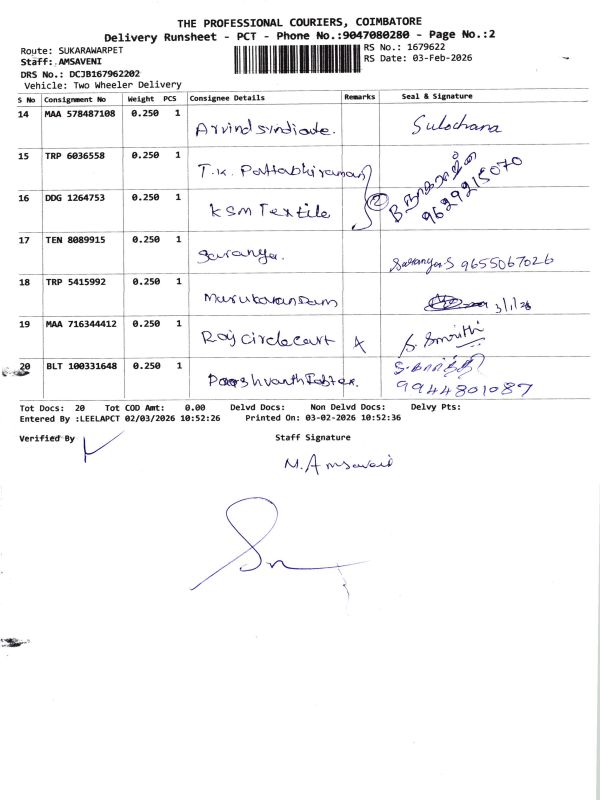 THE PROFESSIONAL COURIERS, COIMBATORE
Delivery Runsheet - PCT - Phone No.:9047080280 - Page No.:2
Route: SUKARAWARPET
RS No.: 1679622
Staff: AMSAVENI
RS Date: 03-Feb-2026
DRS No.: DCJB167962202
Vehicle: Two Wheeler Delivery
S No Consignment No Weight PCS Consignee Details Remarks Seal & Signature
14 MAA 578487108 0.250 1 Arvind Syndicate. Sulochana
15 TRP 6036558 0.250 1 T.K. Pattabhiraman
16 DDG 1264753 0.250 1 KSM Textile 2 9629215070
17 TEN 8089915 0.250 1 Saranya. Saranya S 9655067026
18 TRP 5415992 0.250 1
19 MAA 716344412 0.250 1 Raj Circlecart A S. Smrithi
20 BLT 100331648 0.250 1 9944801087
Tot Docs: 20 Tot COD Amt: 0.00 Delvd Docs: Non Delvd Docs: Delvy Pts:
Entered By :LEELAPCT 02/03/2026 10:52:26 Printed On: 03-02-2026 10:52:36
Verified By Staff Signature